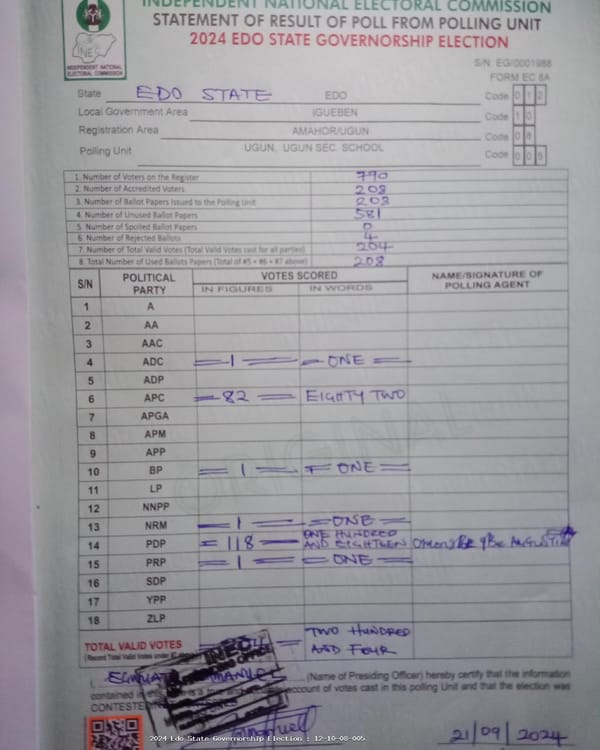 INDEPENDENT NATIONAL ELECTORAL COMMISSION
STATEMENT OF RESULT OF POLL FROM POLLING UNIT
2024 EDO STATE GOVERNORSHIP ELECTION
INEC
INDEPENDENT NATIONAL
ELECTORAL COMMISSION
S/N: EG/0001988
FORM EC 8A
State EDO STATE EDO Code 0 1 2
Local Government Area IGUEBEN Code 1 0
Registration Area AMAHOR/UGUN Code 0 8
Polling Unit UGUN, UGUN SEC. SCHOOL Code 0 0 5
1. Number of Voters on the Register 790
2. Number of Accredited Voters 208
3. Number of Ballot Papers Issued to the Polling Unit
4. Number of Unused Ballot Papers 581
5. Number of Spoiled Ballot Papers 0
6. Number of Rejected Ballots 4
7. Number of Total Valid Votes (Total Valid Votes cast for all parties) 204
8. Total Number of Used Ballots Papers (Total of #5 + #6 + #7 above) 208
S/N POLITICAL PARTY VOTES SCORED NAME/SIGNATURE OF POLLING AGENT
IN FIGURES IN WORDS
1 A
2 AA
3 AAC
4 ADC 1 ONE
5 ADP
6 APC 82 EIGHTY TWO
7 APGA
8 APM
9 APP
10 BP 1 ONE
11 LP
12 NNPP
13 NRM 1 ONE
14 PDP 118 ONE HUNDRED AND EIGHTEEN
15 PRP 1 ONE
16 SDP
17 YPP
18 ZLP
ORIGINAL
TOTAL VALID VOTES TWO HUNDRED AND FOUR
I, (Name of Presiding Officer) hereby certify that the information
contained in this account of votes cast in this polling Unit and that the election was
CONTESTED
INEC
21/09/2024
2024 Edo State Governorship Election : 12-10-08-005